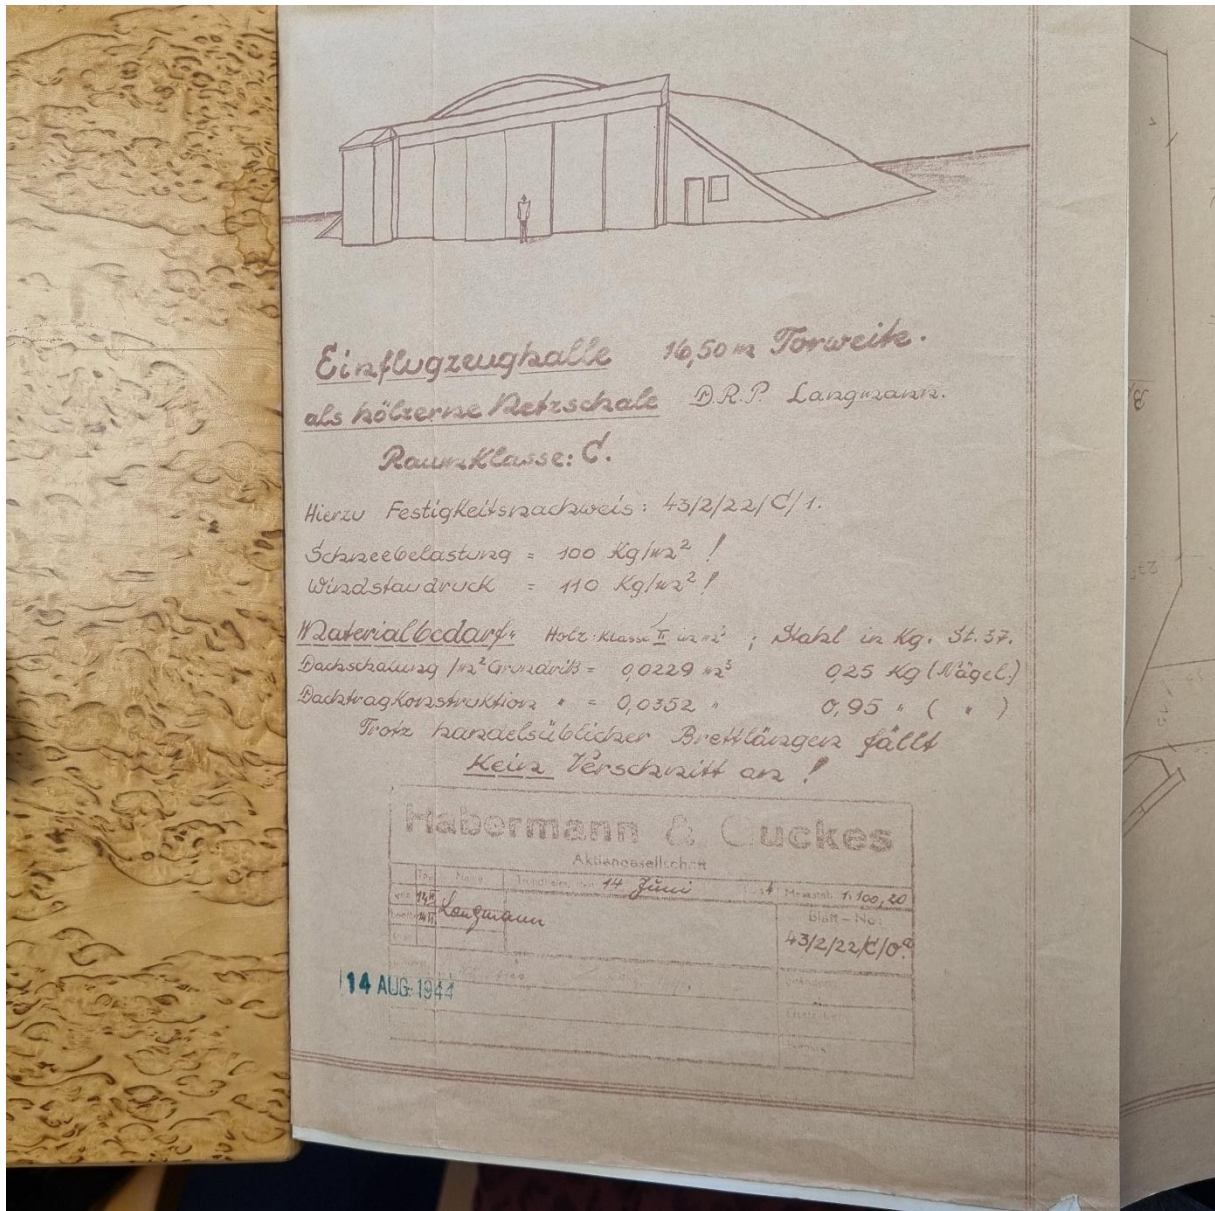 Einflugzeughalle 16,50 m Torweite.
als hölzerne Netzschale D.R.P. Langmann.
Raumklasse: C.
Hierzu Festigkeitsnachweis: 43/2/22/C/1.
Schneebelastung = 100 Kg/m² !
Windstaudruck = 110 Kg/m² !
Materialbedarf: Holz Klasse II in m³ ; Stahl in Kg. St. 37.
Dachschalung /m² Grundriß = 0,0229 m³ 0,25 Kg (Nägel.)
Dachtragkonstruktion " = 0,0352 " 0,95 " ( " )
Trotz handelsüblicher Brettlängen fällt
Kein Verschnitt an !
Habermann & Guckes
Aktiengesellschaft
Tag Name 14 Juni Massstab 1:100, 20
Langmann Blatt-No:
43/2/22/C/0ª
14 AUG 1944